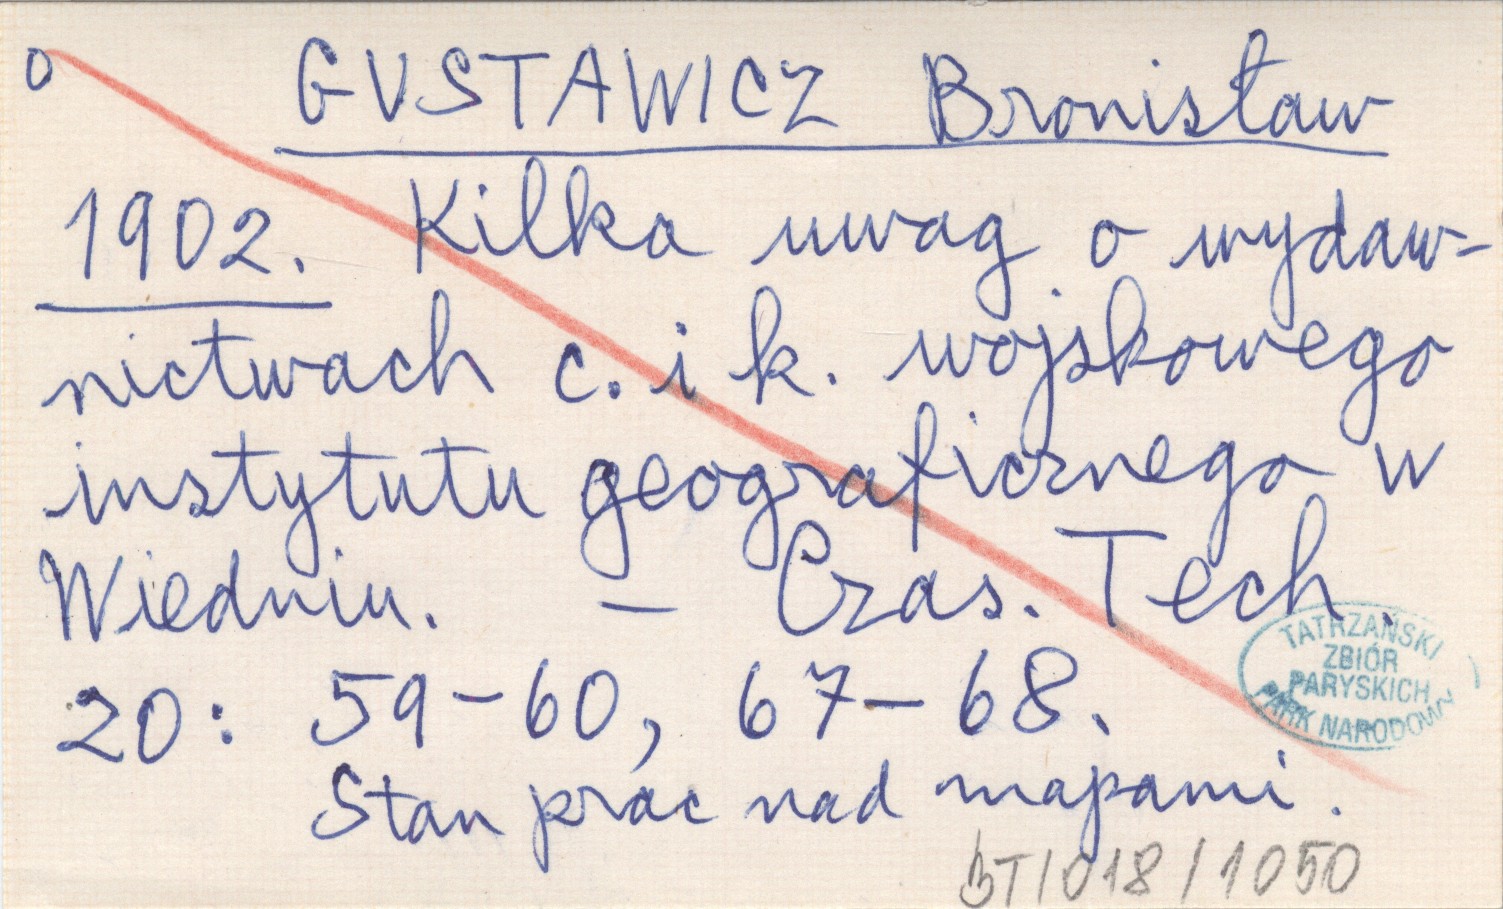 o GUSTAWICZ Bronisław
1902. Kilka uwag o wydaw-
nictwach c. i k. wojskowego
instytutu geograficznego w
Wiedniu. — Czas. Tech.
20: 59-60, 67-68.
Stan prac nad mapami.
TATRZAŃSKI
ZBIÓR
PARYSKICH
PARK NARODOWY
BT/018/1050